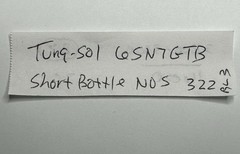 Tung-Sol 6SN7GTB
Short Bottle NOS 322